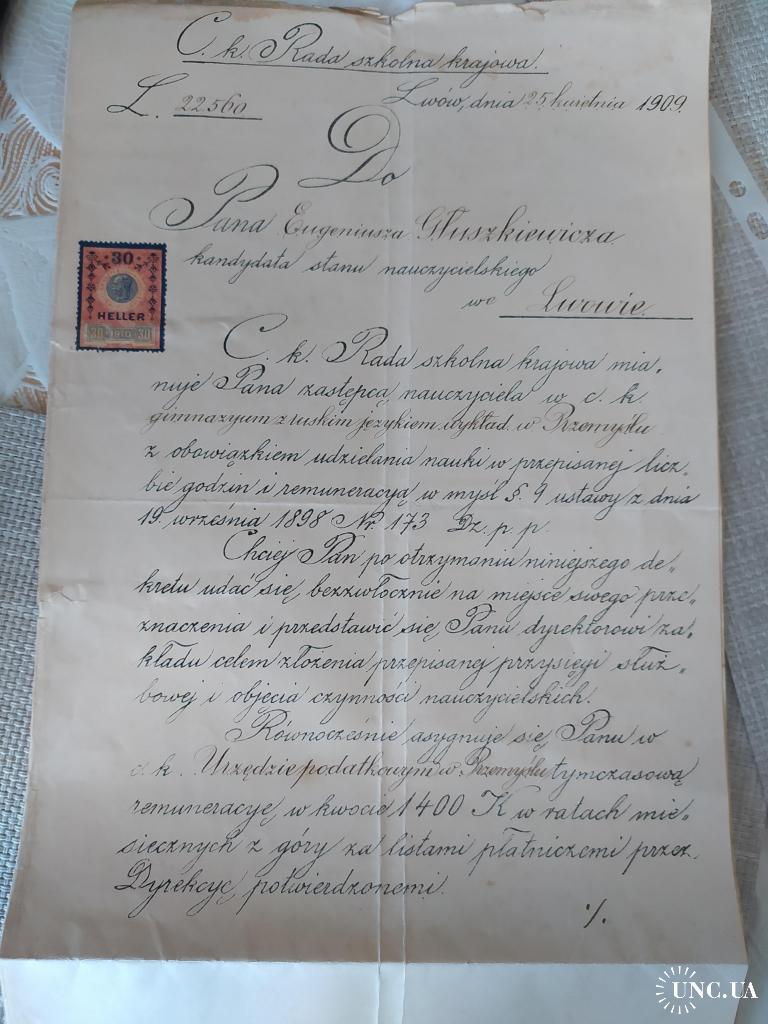 C. k. Rada szkolna krajowa.
L. 22560
Lwów, dnia 25 kwietnia 1909.
Do
Pana Eugeniusza Głuszkiewicza
kandydata stanu nauczycielskiego
we Lwowie.
30
HELLER
30 1910 30
C. k. Rada szkolna krajowa mia„
nuje Pana zastępcą nauczyciela w c. k.
gimnazyum z ruskim językiem wykład. w Przemyślu
z obowiązkiem udzielania nauki w przepisanej licz„
bie godzin i remuneracyą w myśl §. 9 ustawy z dnia
19. września 1898 Nr. 173 Dz. p. p.
Chciej Pan po otrzymaniu niniejszego de„
kretu udać się bezzwłocznie na miejsce swego prze„
znaczenia i przedstawić się Panu dyrektorowi za„
kładu celem złożenia przepisanej przysięgi służ„
bowej i objęcia czynności nauczycielskich.
Równocześnie asygnuje się Panu w
c. k. Urzędzie podatkowym w Przemyślu tymczasową
remuneracyę w kwocie 1400 K w ratach mie„
sięcznych z góry za listami płatniczemi przez
Dyrekcyę potwierdzonemi.
./.
UNC.UA